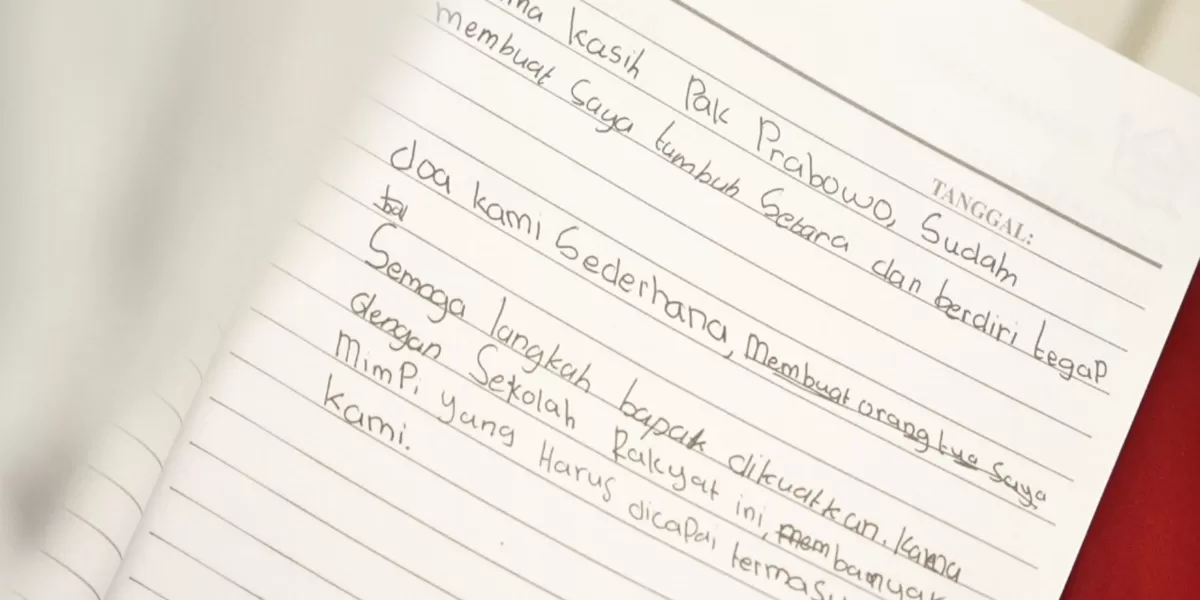 TANGGAL:
ma kasih Pak Prabowo, Sudah
membuat Saya tumbuh Setara dan berdiri tegap
doa kami Sederhana, Membuat orang tua Saya
Semoga langkah bapak dikuatkan. Karna
dengan Sekolah Rakyat ini, membanyak
MimPi yang Harus dicapai termasu
kami.